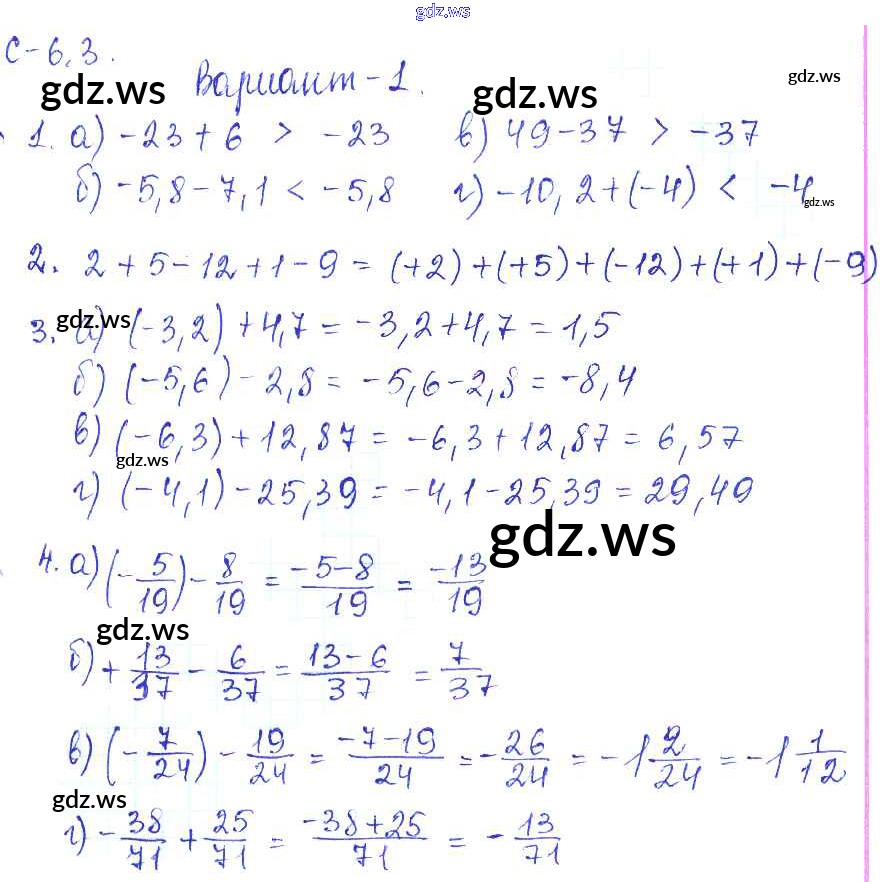 gdz.ws
С-6.3.
gdz.ws Вариант-1. gdz.ws gdz.ws
1. а) -23+6 > -23 в) 49-37 > -37
б) -5,8-7,1 < -5,8 г) -10,2+(-4) < -4 gdz.ws
2. 2+5-12+1-9=(+2)+(+5)+(-12)+(+1)+(-9)
3. а) gdz.ws (-3,2)+4,7=-3,2+4,7=1,5
б) (-5,6)-2,8=-5,6-2,8=-8,4
в) (-6,3)+12,87=-6,3+12,87=6,57
gdz.ws
г) (-4,1)-25,39=-4,1-25,39=29,49
gdz.ws
4. а) (-5/19)-8/19=(-5-8)/19=-13/19
gdz.ws
б) +13/37-6/37=(13-6)/37=7/37
в) (-7/24)-19/24=(-7-19)/24=-26/24=-1 2/24=-1 1/12
gdz.ws
г) -38/71+25/71=(-38+25)/71=-13/71